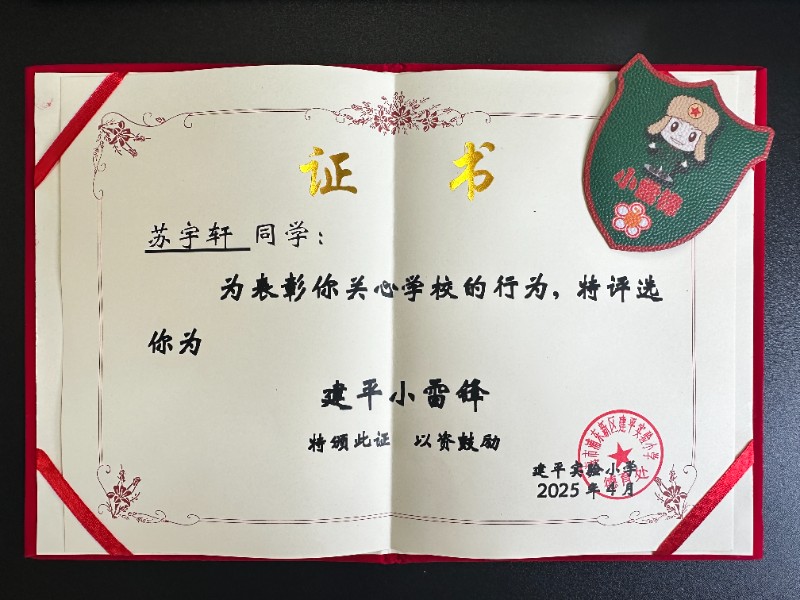 证书
苏宇轩 同学：
为表彰你关心学校的行为，特评选
你为
建平小雷锋
特颁此证 以资鼓励
建平实验小学
2025年4月
市浦东新区建平实验小学
德育处
小雷锋